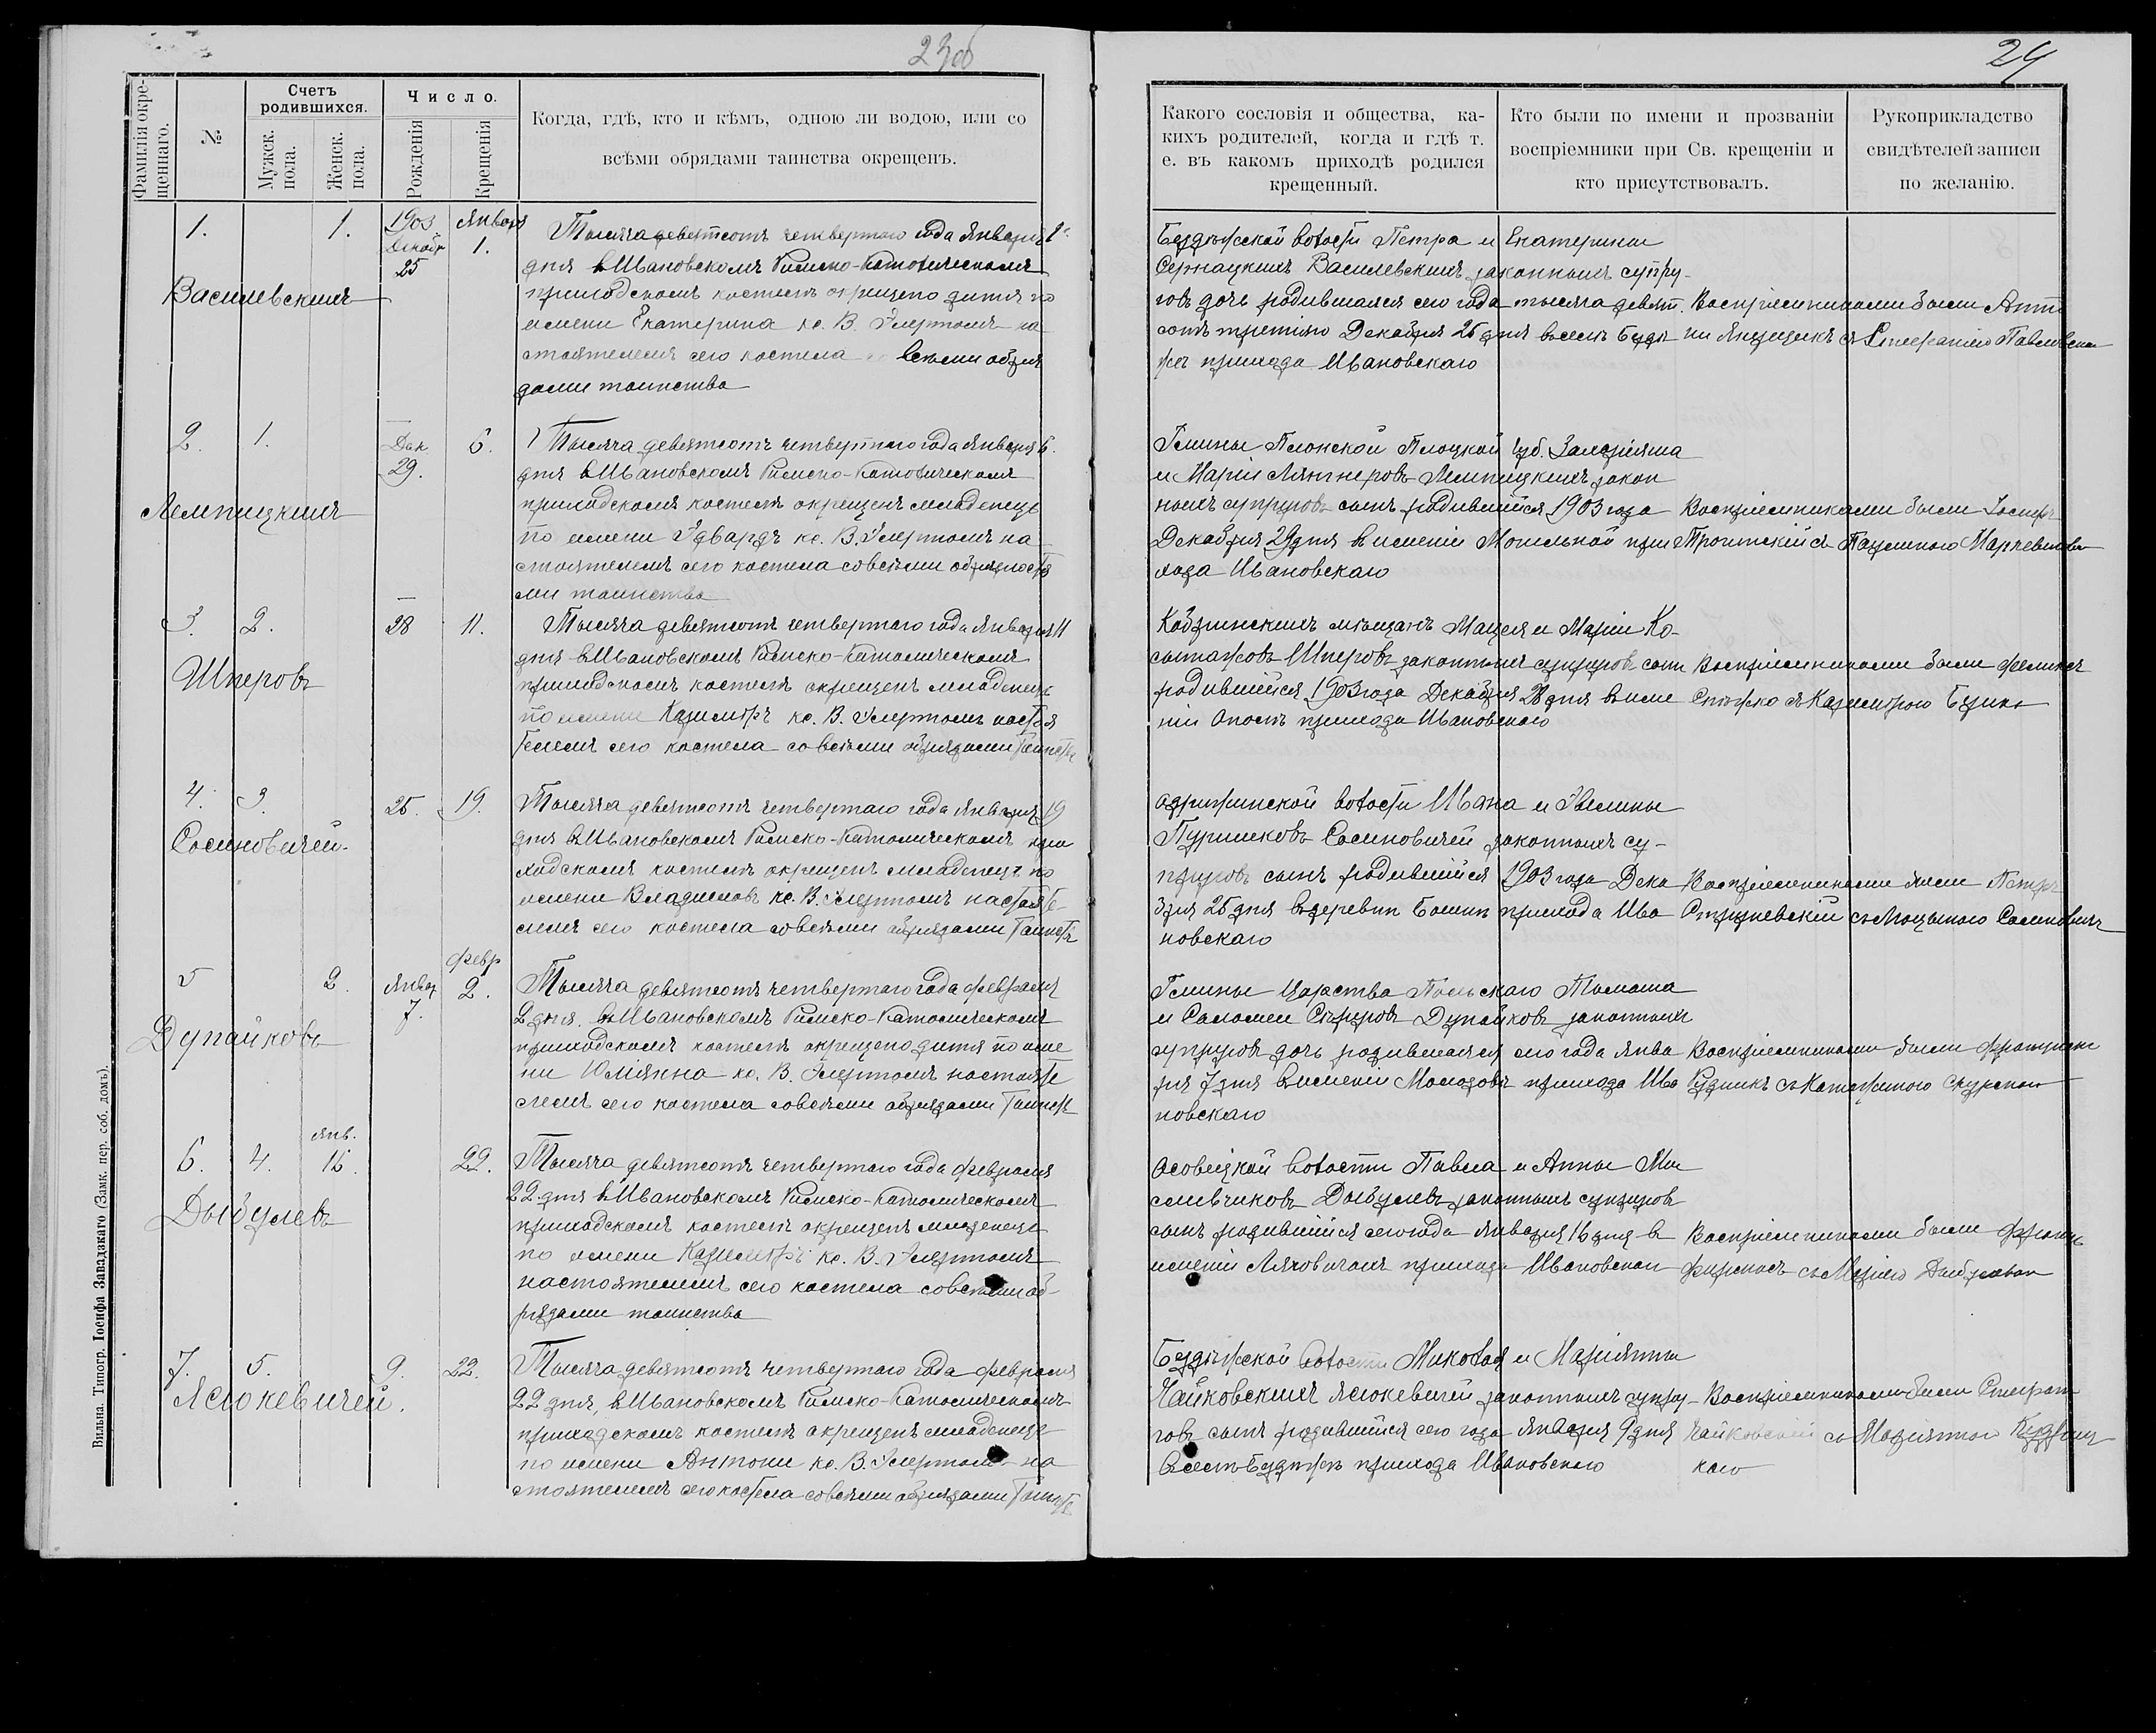 23об
24
Фамилія окрещеннаго.
№
Счетъ родившихся.
Мужск. пола.
Женск. пола.
Число.
Рожденія
Крещенія
Когда, гдѣ, кто и кѣмъ, одною ли водою, или со
всѣми обрядами таинства окрещенъ.
Какого сословія и общества, ка-
кихъ родителей, когда и гдѣ т.
е. въ какомъ приходѣ родился
крещенный.
Кто были по имени и прозванію
воспріемники при Св. крещеніи и
кто присутствовалъ.
Рукоприкладство
свидѣтелей записи
по желанію.
1.
1.
1903 Декабр 25
Января 1.
Василевскихъ
Тысяча девятсотъ четвертаго года Января 1го
дня въ Ивановскомъ Римско-Католическомъ
приходскомъ костелѣ окрещено дитя по
имени Екатерина кс. В. на
стоятелемъ сего костела всѣми обря
дами таинства
Бездѣжской волости Петра и Екатерины
Василевскихъ законныхъ супру-
говъ дочь родившаяся сего года тысяча девят.
сотъ третьяго Декабря 25 дня въ селѣ Бездѣ
жъ прихода Ивановскаго
Воспріемниками были Анто
ни съ Стефаніею
2.
1.
Дек. 29.
6.
Лемпицкихъ
Тысяча девятсотъ четвертаго года Января 6.
дня въ Ивановскомъ Римско-Католическомъ
приходскомъ костелѣ окрещенъ младенецъ
по имени Эдвардъ кс. В. на
стоятелемъ сего костела со всѣми обрядностя
ми таинства
Гмины Плонской Плоцкой губ.
и Маріи Лемпицкихъ закон
ныхъ супруговъ сынъ родившійся 1903 года
Декабря 29 дня въ имѣніи Могильной при
хода Ивановскаго
Воспріемниками были Іосифъ
съ Паулиною
3.
2.
28
11.
Шперовъ
Тысяча девятсотъ четвертаго года Января 11
дня въ Ивановскомъ Римско-Католическомъ
приходскомъ костелѣ окрещенъ младенецъ
по имени Казимиръ кс. В. настоя
телемъ сего костела со всѣми обрядами таинства
Кобринскихъ мѣщанъ и Маріи Ко-
Шперовъ законныхъ супруговъ сынъ
родившійся 1903 года Декабря 28 дня въ имѣ
ніи Опостъ прихода Ивановскаго
Воспріемниками были Феликсъ
съ Казимирою
4.
3.
25.
19.
Сосиновичей.
Тысяча девятсотъ четвертаго года Января 19
дня въ Ивановскомъ Римско-Католическомъ при
ходскомъ костелѣ окрещенъ младенецъ по
имени Владиславъ кс. В. настояте-
лемъ сего костела со всѣми обрядами таинств
Одрижинской волости Ивана и Эвелины
Сосиновичей законныхъ су-
пруговъ сынъ родившійся 1903 года Дека
бря 25 дня въ деревни прихода Ива
новскаго
Воспріемниками были Петръ
съ Сосиновичъ
5
2.
Январ 7.
Февр 2.
Дупайковъ
Тысяча девятсотъ четвертаго года Февраля
2 дня въ Ивановскомъ Римско-Католическомъ
приходскомъ костелѣ окрещено дитя по име
ни Юліянна кс. В. настояте
лемъ сего костела со всѣми обрядами таинств
Гмины Царства Польскаго Томаша
и Саломеи Дупайковъ законныхъ
супруговъ дочь родившаяся сего года Янва
ря 7 дня въ имѣніи Молодовѣ прихода Ива
новскаго
Воспріемниками были
съ Катажиною
6.
4.
Янв. 16.
22.
Дыбулевъ
Тысяча девятсотъ четвертаго года Февраля
22 дня въ Ивановскомъ Римско-Католическомъ
приходскомъ костелѣ окрещенъ младенецъ
по имени Казимиръ кс. В.
настоятелемъ сего костела со всѣми об-
рядами таинства
Осовецкой волости Павла и Анны
Дыбулевъ законныхъ супруговъ
сынъ родившійся сего года Января 16 дня в
имѣніи Ляховичахъ прихода Ивановскаго
Воспріемниками были
съ Маріею
7.
5.
9.
22.
Ясюкевичей.
Тысяча девятсотъ четвертаго года Февраля
22 дня, въ Ивановскомъ Римско-Католическомъ
приходскомъ костелѣ окрещенъ младенецъ
по имени Антони кс. В. на
стоятелемъ сего костела со всѣми обрядами таинств
Бездѣжской волости Миколая и Маріянны
Чайковскихъ Ясюкевичей законныхъ супру-
говъ сынъ родившійся сего года Января 9 дня
въ селѣ Бездѣжъ прихода Ивановскаго
Воспріемниками были Стефан
Чайковскій съ Маріянною
Вильна. Типогр. Іосифа Завадзкаго (Замк. пер. соб. домъ).